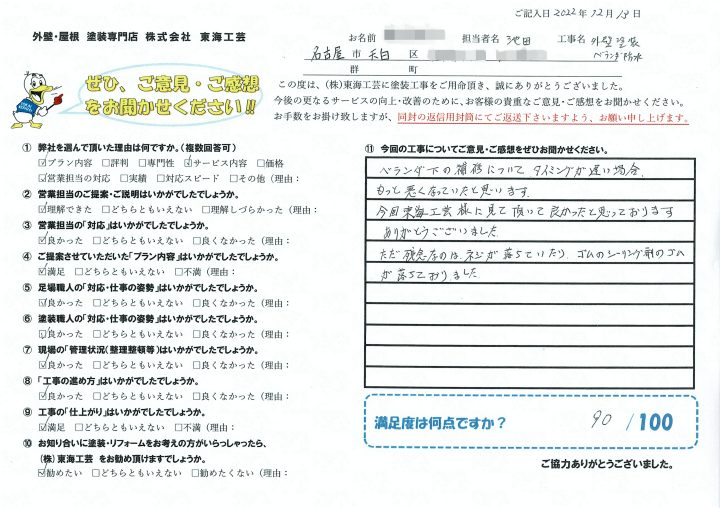 ご記入日 2022年 12月 18日
外壁・屋根 塗装専門店 株式会社 東海工芸
お名前 担当者名 池田 工事名 外壁塗装
ベランダ防水
名古屋 市 天白 区
群 町
ぜひ、ご意見・ご感想
をお聞かせください!!
この度は、(株)東海工芸に塗装工事をご用命頂き、誠にありがとうございました。
今後の更なるサービスの向上・改善のために、お客様の貴重なご意見・ご感想をお聞かせください。
お手数をお掛け致しますが、同封の返信用封筒にてご返送下さいますよう、お願い申し上げます。
① 弊社を選んで頂いた理由は何ですか。(複数回答可)
☑プラン内容 □評判 □専門性 ☑サービス内容 □価格
☑営業担当の対応 □実績 □対応スピード □その他(理由:
② 営業担当のご提案・ご説明はいかがでしたでしょうか。
☑理解できた □どちらともいえない □理解しづらかった(理由:
③ 営業担当の「対応」はいかがでしたでしょうか。
☑良かった □どちらともいえない □良くなかった(理由:
④ ご提案させていただいた「プラン内容」はいかがでしたでしょうか。
☑満足 □どちらともいえない □不満(理由:
⑤ 足場職人の「対応・仕事の姿勢」はいかがでしたでしょうか。
☑良かった □どちらともいえない □良くなかった(理由:
⑥ 塗装職人の「対応・仕事の姿勢」はいかがでしたでしょうか。
☑良かった □どちらともいえない □良くなかった(理由:
⑦ 現場の「管理状況(整理整頓等)はいかがでしたでしょうか。
☑良かった □どちらともいえない □良くなかった(理由:
⑧ 「工事の進め方」はいかがでしたでしょうか。
☑良かった □どちらともいえない □良くなかった(理由:
⑨ 工事の「仕上がり」はいかがでしたでしょうか。
☑満足 □どちらともいえない □不満(理由:
⑩ お知り合いに塗装・リフォームをお考えの方がいらっしゃったら、
(株)東海工芸 をお勧め頂けますでしょうか。
☑勧めたい □どちらともいえない □勧めたくない(理由:
⑪ 今回の工事についてご意見・ご感想をぜひお聞かせください。
ベランダ下の補修について タイミングが遅い場合、
もっと悪くなっていたと思います。
今回東海工芸様に見て頂いて良かったと思っております
ありがとうございました。
ただ残念なのは、ネジが落ちていたり、ゴムのシーリング剤のゴム
が落ちておりました
満足度は何点ですか? 90 /100
ご協力ありがとうございました。